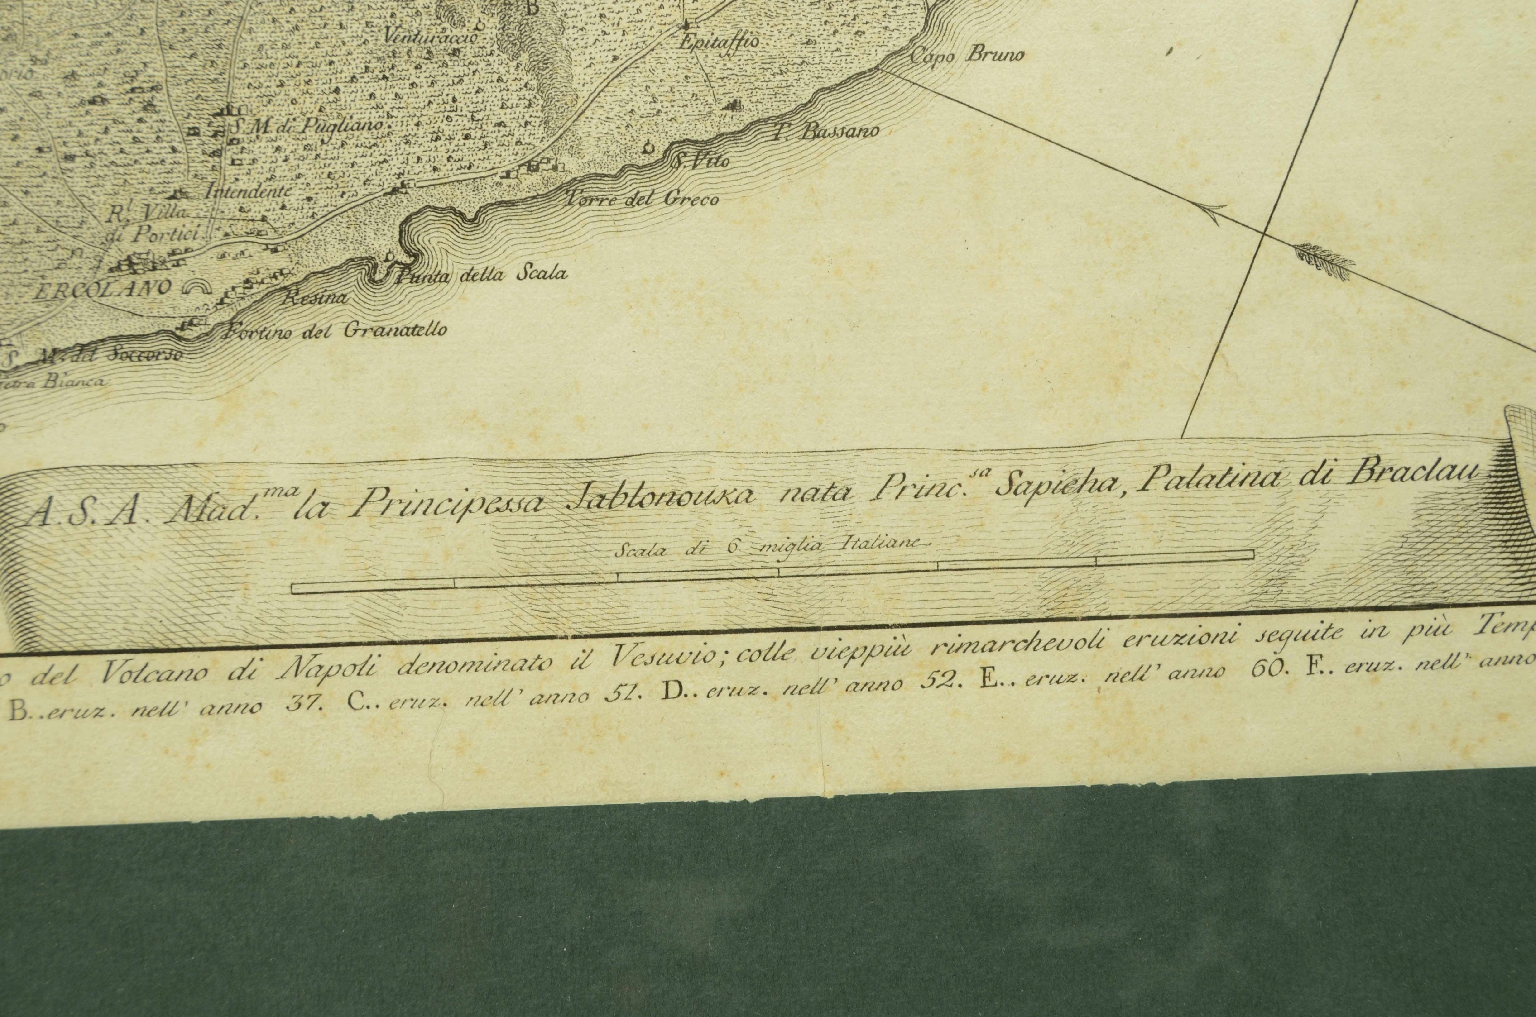 B
Venturaccio
Epitaffio
Capo Bruno
S. M. di Pugliano
T. Bassano
S. Vito
Intendente
Torre del Greco
R.l Villa
di Portici
Punta della Scala
ERCOLANO
Resina
Fortino del Granatello
S. M.a del Soccorso
Bianca
A. S. A. Mad.ma la Principessa Jablonouxa nata Princ.sa Sapieha, Palatina di Braclau
Scala di 6 miglia Italiane
o del Volcano di Napoli denominato il Vesuvio; colle vieppiù rimarchevoli eruzioni seguite in più Temp
B.. eruz. nell' anno 37. C.. eruz. nell' anno 51. D.. eruz. nell' anno 52. E.. eruz. nell' anno 60. F.. eruz. nell' anno